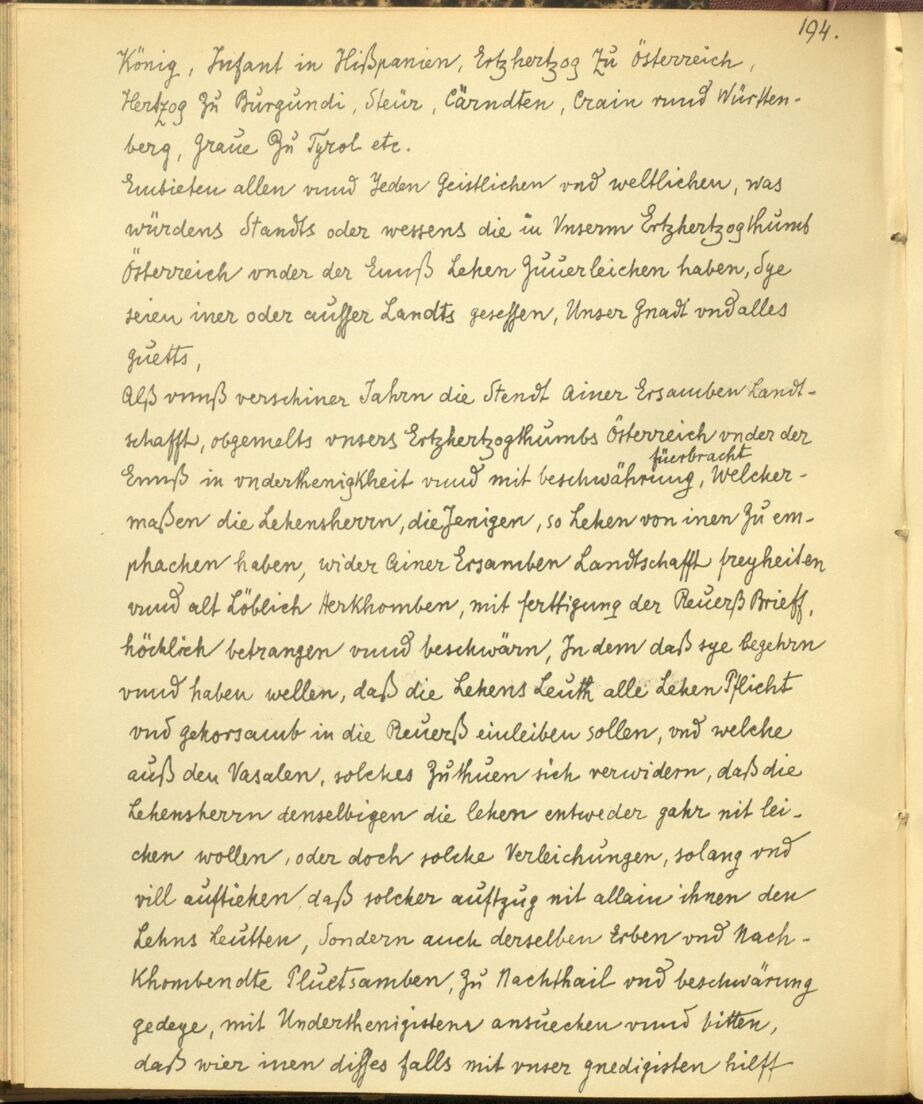 194.
König, Infant in Hißpanien, Ertzhertzog Zu Österreich,
Hertzog Zu Burgundi, Steür, Cärndten, Crain vnnd Württen-
berg, Graue Zu Tyrol etc.
Embieten allen vnnd Jeden Geistlichen vnd weltlichen, was
würdens Standts oder wessens die in Vnserm Ertzhertzogthumb
Österreich vnder der Ennß Lehen Zuuerleichen haben, Sye
seien iner oder ausser Landts gesessen, Unser Gnadt vnd alles
guetts,
Alß vnnß verschiner Jahrn die Stendt Ainer Ersamben Landt-
schafft, obgemelts vnsers Ertzhertzogthumbs Österreich vnder der
Ennß in vnderthenigkheit vnnd mit beschwährung füerbracht, Welcher-
maßen die Lehensherrn, die Jenigen, so Lehen von inen Zu em-
phachen haben, wider Ainer Ersamben Landtschafft freyheiten
vnnd alt Löblich Herkhomben, mit ferttigung der Reuerß Brieff,
höchlich betrangen vnnd beschwärn, In dem daß sye begehrn
vnnd haben wellen, daß die Lehens Leuth alle Lehen Pflicht
vnd gehorsamb in die Reuerß einleiben sollen, vnd welche
auß den Vasalen, solches Zuthuen sich verwidern, daß die
Lehensherrn denselbigen die lehen entweder gahr nit lei-
chen wollen, oder doch solche Verleichungen, solang vnd
vill auffziehen, daß solcher auffzug nit allain ihnen den
Lehns Leutten, Sondern auch derselben Erben vnd Nach-
Khombendte Pluetsamben, Zu Nachthail vnd beschwärung
gedeye, mit Underthenigisten ansuechen vnnd bitten,
daß wier inen disses falls mit vnser gnedigisten hilff